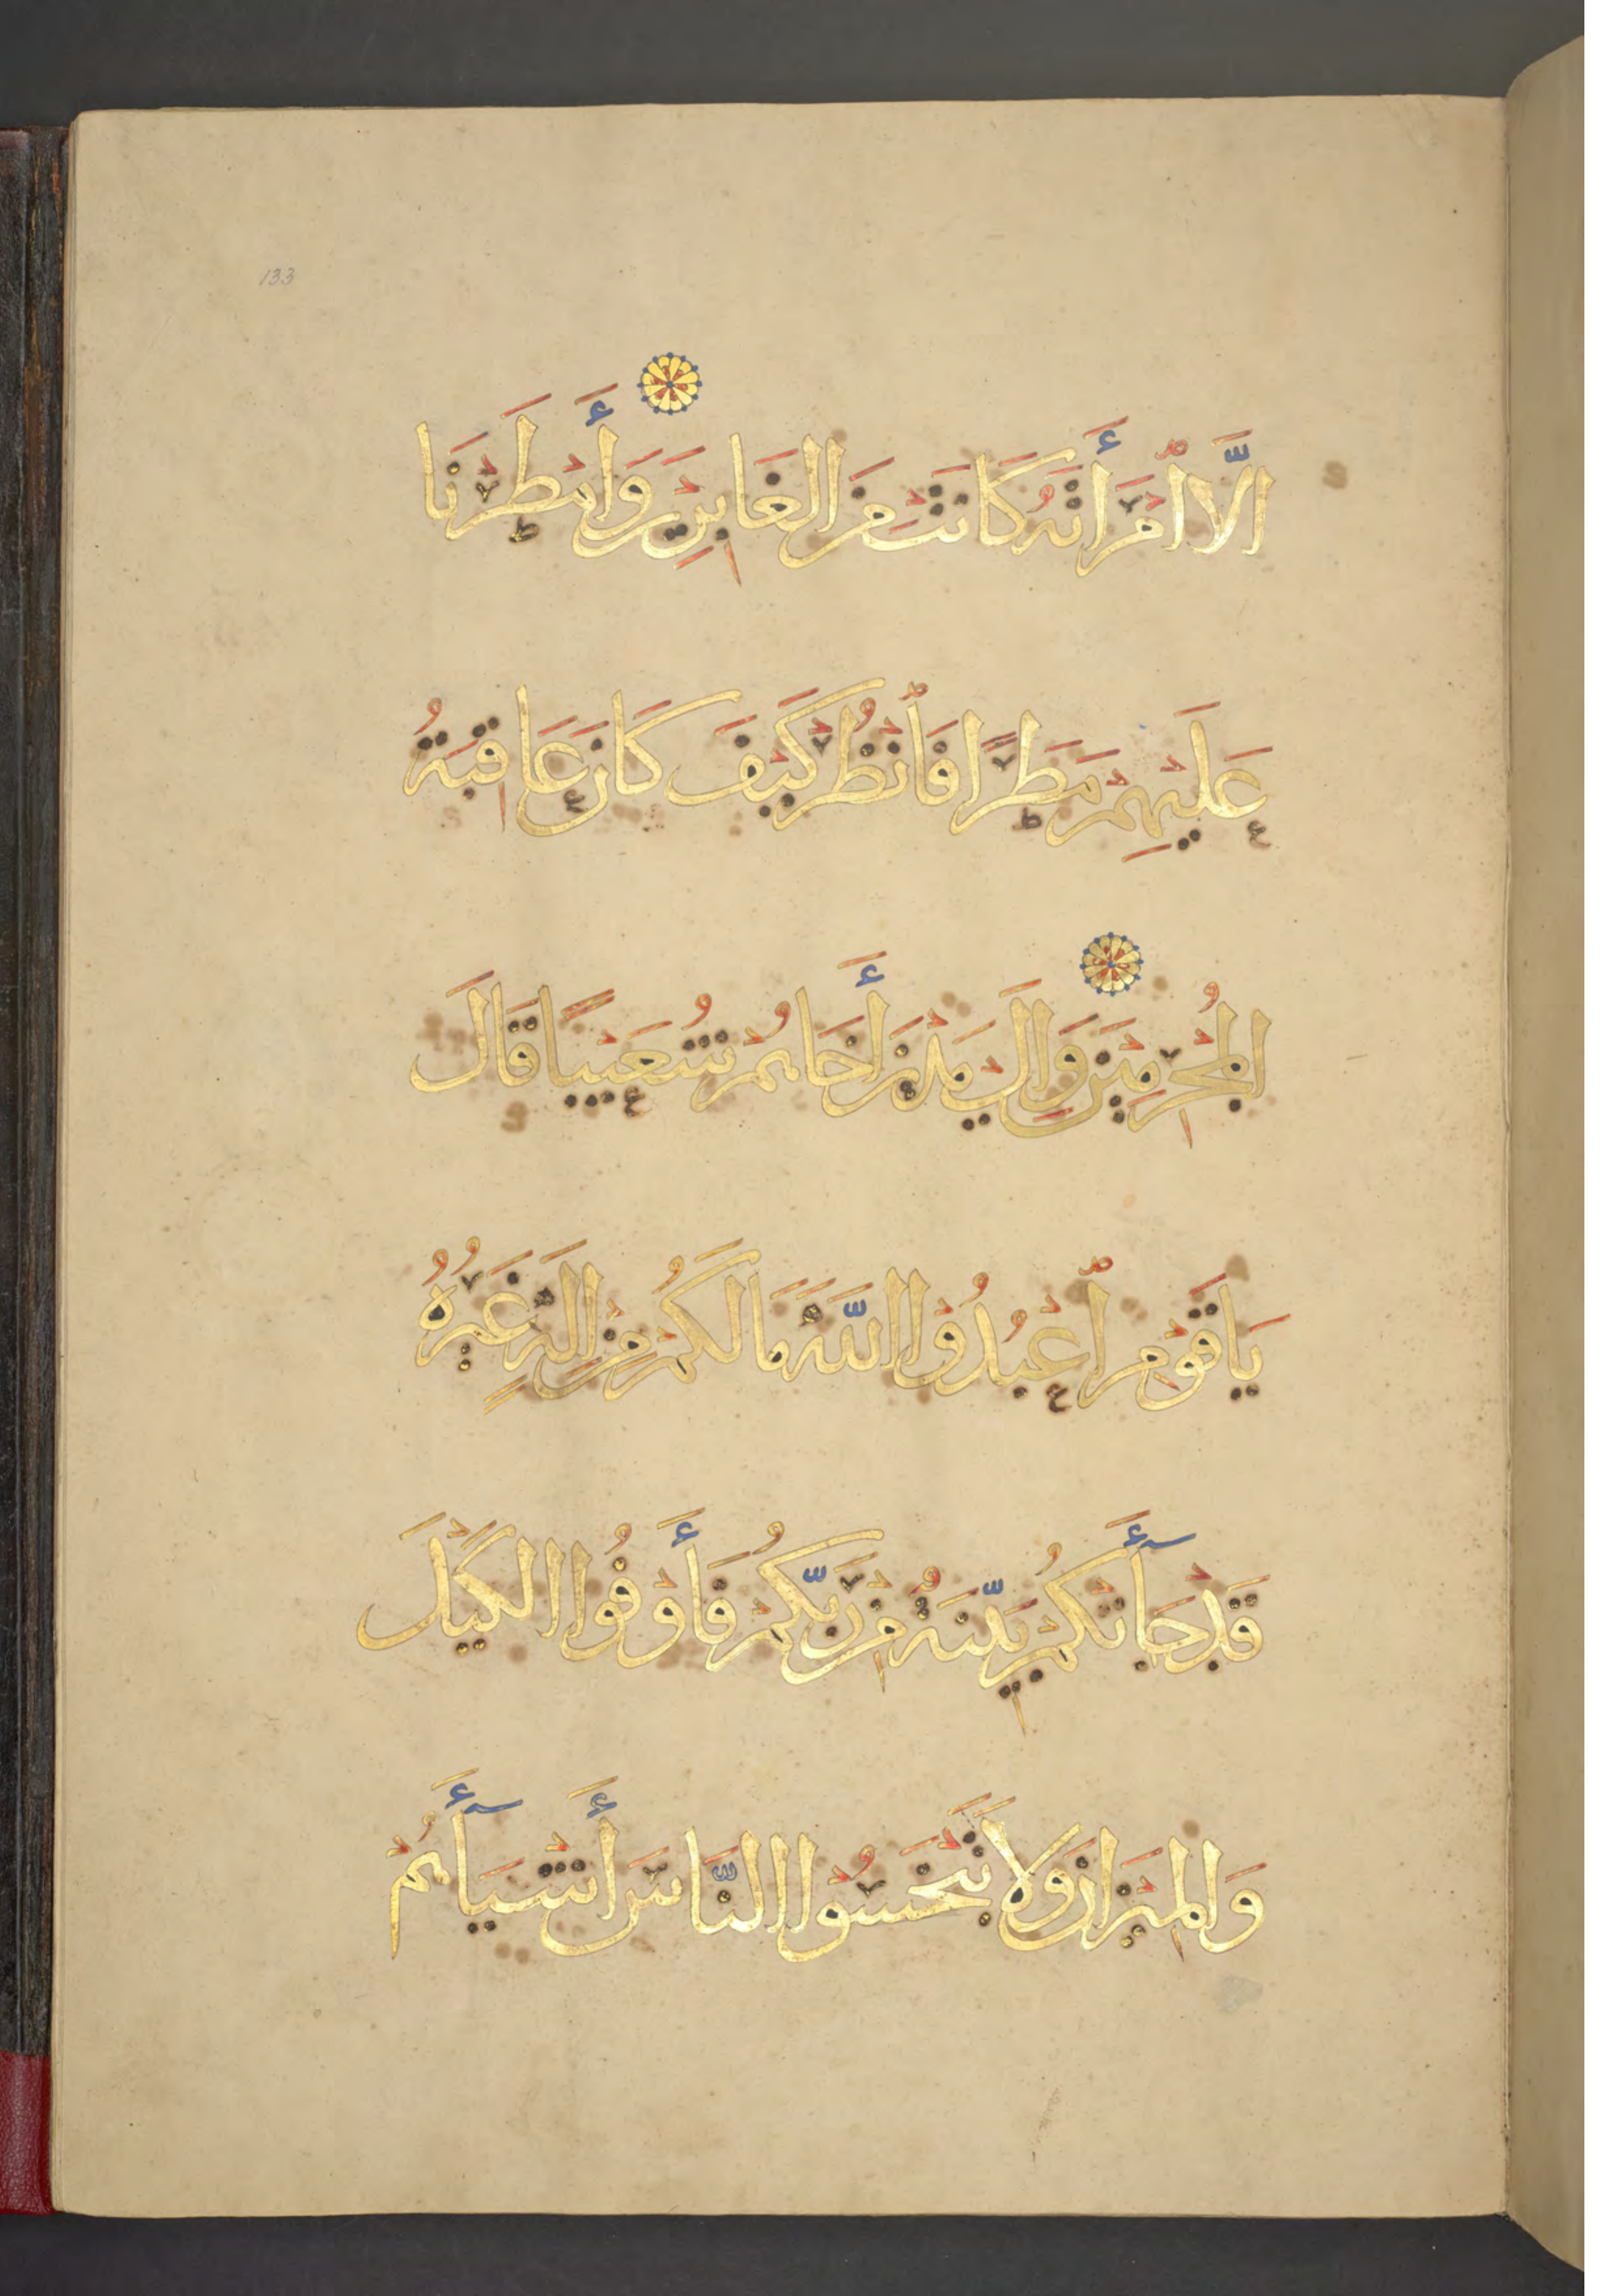 133
اِلَّا ٱمْرَأَتَهُ كَانَتْ مِنَ الْغَابِرِيْنَ وَأَمْطَرْنَا
عَلَيْهِمْ مَطَرًا فَٱنْظُرْ كَيْفَ كَانَ عَاقِبَةُ
الْمُجْرِمِيْنَ وَاِلَى مَدْيَنَ أَخَاهُمْ شُعَيْبًا قَالَ
يَا قَوْمِ ٱعْبُدُوْا اللَّهَ مَا لَكُمْ مِنْ اِلَهٍ غَيْرُهُ
قَدْ جَآأَتْكُمْ بَيِّنَةٌ مِنْ رَبِّكُمْ فَأَوْفُوا الْكَيْلَ
وَالْمِيْزَانَ وَلَا تَبْخَسُوْا النَّاسَ أَشْيَآأَهُمْ